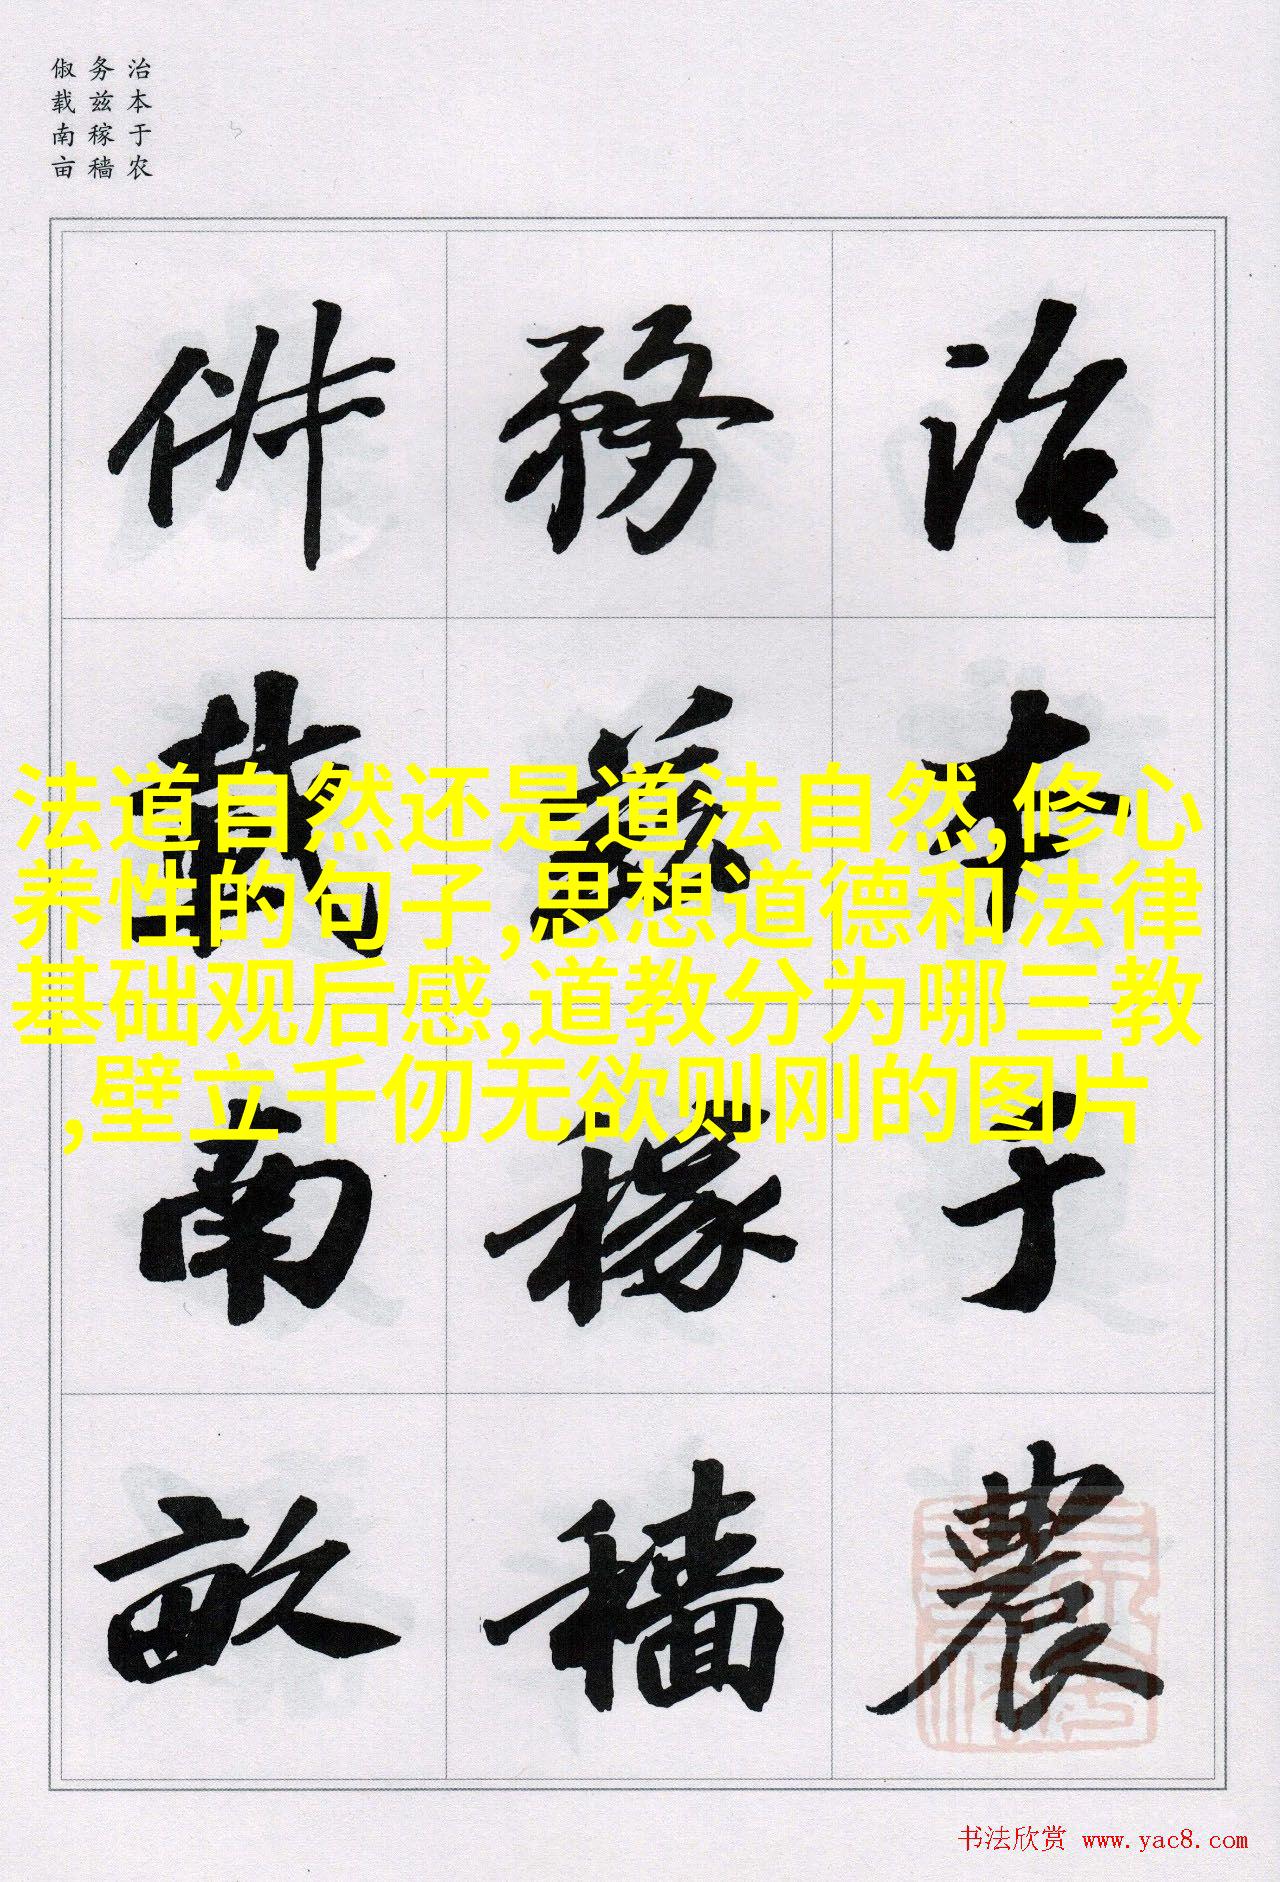 治本于农
务兹稼穑
俶载南亩
治本于農
務茲稼穡
俶載南畝
法道自然还是道法自然,修心
养性的句子,思想道德和法律
基础观后感,道教分为哪三教
,壁立千仞无欲则刚的图片
书法欣赏 www.yac8.com